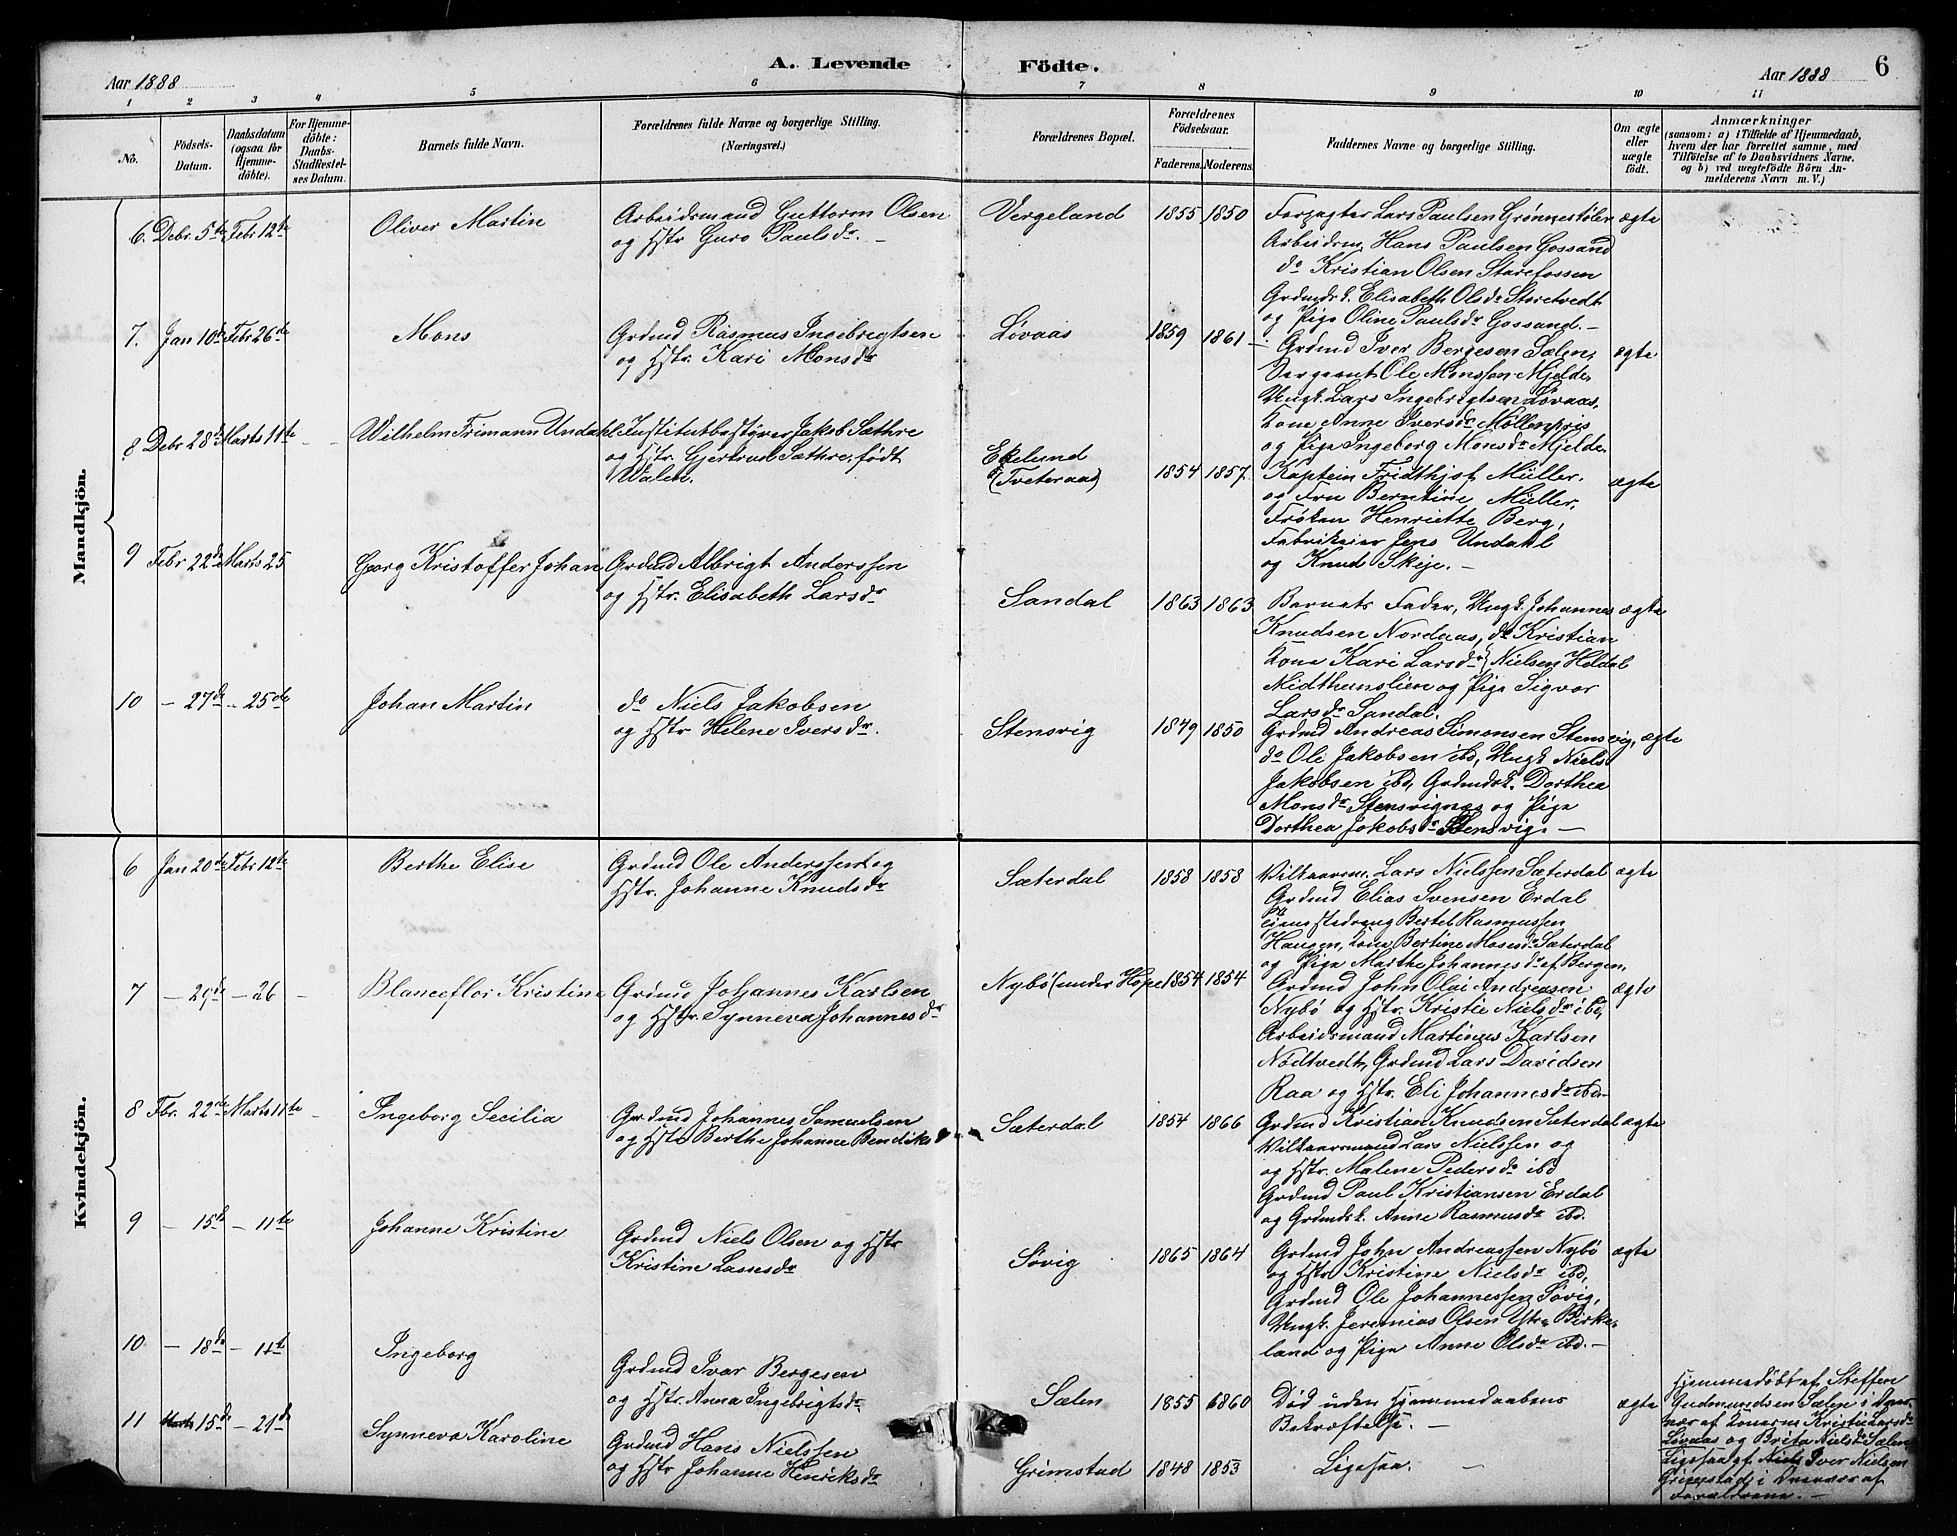 A. Levende Födte.
Aar 1888
Aar 1888
6
1 2 3 4 5 6 7 8 9 10 11
No.
Födsels-Datum.
Daabsdatum (ogsaa for Hjemme-döbte).
For Hjemme-döbte: Daabs-Stadfæstel-ses Datum.
Barnets fulde Navn.
Forældrenes fulde Navne og borgerlige Stilling. (Næringsvei.)
Forældrenes Bopæl.
Forældrenes Födselsaar.
Faderens. Moderens.
Faddernes Navne og borgerlige Stilling.
Om ægte eller uægte födt.
Anmærkninger
(saasom: a) i Tilfælde af Hjemmedaab, hvem der har forrettet samme, med Tilföielse af to Daabsvidners Navne. og b) ved uægtefödte Börn An-melderens Navn m. V.)
Mandkjön.
6. Debr. 5te Febr 12te
Oliver Martin
Arbeidsmand Guttorm Olsen
og Hstr Guro Paulsdr. –
Vergeland
1855 1850
Forpagter Lars Paulsen Grønnestølen
Arbeidsm. Hans Paulsen Gossand
do Kristian Olsen Starefossen
Grdmdsk. Elisabeth Olsdr Storetvedt
og Pige Oline Paulsdr Gossand. –
ægte
7. Jan 10de Febr 26de
Mons
Grdmd Rasmus Ingebrigtsen
og Hstr. Kari Monsdr
Livaas
1859 1861
Grdmd Iver Bergesen Sælen,
Sergeant Ole Monssen Mjelde,
Ungk. Lars Ingebrigtsen Livaas,
Kone Anne Iversdr Møllenpris
og Pige Ingeborg Monsdr Mjelde.
ægte
8 Debr 28de Marts 11te
Wilhelm Frimann Undahl
Institutbestyrer Jakob Sæthre
og Hstr. Gjertrud Sæthre, født
Walen.
Ekelund
(Tveteraas)
1854 1857.
Kaptein Fridthjof Müller.
og Fru Berntine Müller,
Frøken Henriette Berg,
Fabrikeier Jens Undahl
og Knud Skeje. –
ægte
9 Febr 22de Marts 25
Georg Kristoffer Johan
Grdmd Albrigt Anderssen
og Hstr. Elisabeth Larsdr
Sandal
1863 1863
Barnets Fader, Ungk. Johannes
Knudsen Nordaas, do Kristian
Kone Kari Larsdr (Nielsen Heldal
Midthunslien og Pige Sigvor
Larsdr Sandal.
ægte
10 – 27de – 25de
Johan Martin
do Niels Jakobsen
og Hstr Helene Iversdr.
Stensvig
1849 1850
Grdmd Andreas Simonsen Stensvig,
do Ole Jakobsen ibd, Ungk Niels
Jakobsen ibd, Grdmdsk. Dorthea
Monsdr Stensvignes og Pige
Dorthea Jakobsdr Stensvig. –
ægte
Kvindekjön.
6 Jan 20de Febr 12te
Berthe Elise
Grdmd Ole Anderssen og
Hstr. Johanne Knudsdr
Sæterdal
1858 1858
Vilkaarsm. Lars Nielssen Sæterdal
Grdmd Elias Svensen Erdal
Tjenestedreng Bertel Rasmussen
Haugen, Kone Bertine Mosesdr Sæterdal
og Pige Marthe Johannesdr af Bergen.
ægte
7 – 29de – 26 –
Blanceflor Kristine
Grdmd Johannes Karlsen
og Hstr. Synneva Johannesdr
Nybö (under Hope
1854 1854
Grdmd John Olai Andreasen
Nybö og Hstr. Kristie Nielsdr ibd,
Arbeidsmand Martinus Karlsen
Nödtvedt, Grdmd Lars Davidsen
Raa og Hstr. Eli Johannesdr ibd. –
ægte
8 Fbr. 22de Marts 11te –
Ingeborg Secilia
Grdmd Johannes Samuelsen
og Hstr Berthe Johanne Bendiks
Sæterdal
1854 1866
Grdmd Kristian Knudsen Sæterdal
Vilkaarsmand Lars Nielssen og
og Hstr. Malene Pedersdr ibd
Grdmd Paul Kristiansen Erdal
og Grdmdsk. Anne Rasmusdr ibd.
ægte
9 – 15de – 11te
Johanne Kristine
Grdmd Niels Olsen og Hstr
Kristine Lassesdr
Søvig
1865 1864
Grdmd John Andreassen Nybö
og Hstr Kristine Nielsdr ibd,
Grdmd Ole Johannessen Søvig,
Ungk. Jeremias Olsen Ytre Birke-
land og Pige Anne Olsdr ibd. –
ægte
10 – 18de – 11te
Ingeborg
Grdmd Ivar Bergesen
og Hstr. Anna Ingebrigtsdr
Sælen
1855 1860
Død uden Hjemmedaabens
Bekræftelse. –
ægte
Hjemmedöbt af Steffen
Gudmundsen Sælen i Over-
vær af Konerne Kristie Larsdr
Livaas og Brita Nielsdr Sælen
11 Marts 15de – 21de
Synneva Karoline
Grdmd Hans Nielssen
og Hstr Johanne Henriksdr
Grimstad
1848 1853
Ligesaa. –
Ligesaa af Niels Iver Nielsen
Grimstad i Overvær af
Forældrene. –